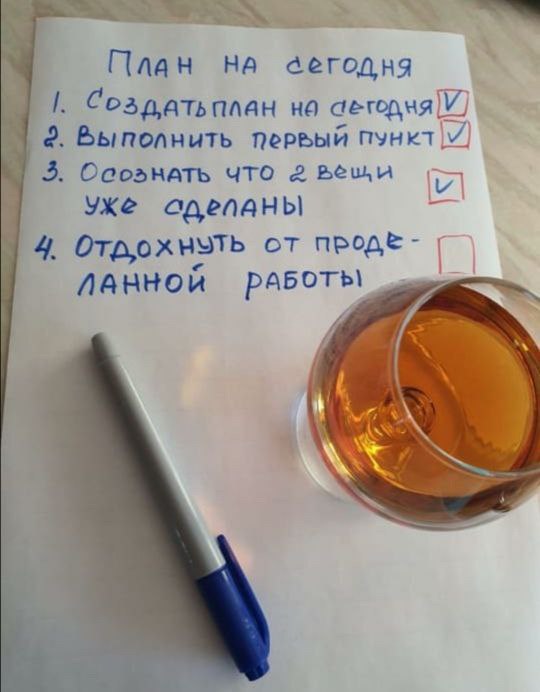 План на сегодня
1. Создать план на сегодня
2. Выполнить первый пункт
3. Осознать что 2 вещи
уже сделаны
4. Отдохнуть от проде-
ланной работы